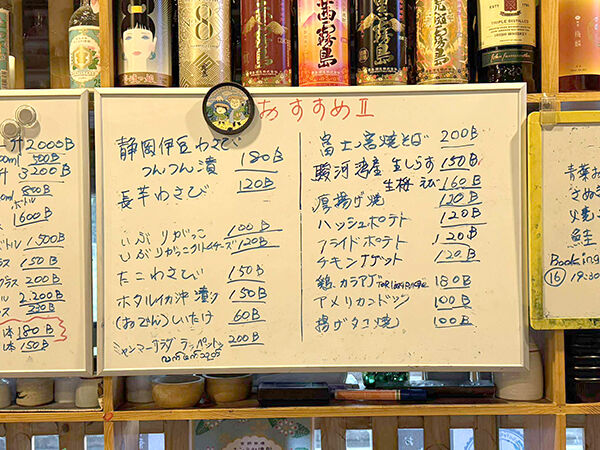 赤霧島
茜霧島
8
升 2000B
500B
升 3200B
800B
ボトル
1600B
ボトル 1,500B
グラス 150B
グラス 200B
ボトル 2,200B
グラス 320B
体 180B
体 150B
おすすめⅡ
静岡伊豆わさび
つんつん漬 180B
長芋わさび 120B
いぶりがっこ 100B
いぶりがっこクリームチーズ 120B
たこわさび 150B
ホタルイカ沖漬け 150B
(おでん)しいたけ 60B
ミャンマーサラダ ラッペットゥ 200B
富士宮焼そば 200B
駿河湾産 生しらす 150B
生桜えび 160B
厚揚げ焼 120B
ハッシュポテト 120B
フライドポテト 120B
チキンナゲット 120B
鶏カラアゲ 180B
アメリカンドッグ 100B
揚げタコ焼 100B
青菜お
さぬき
鮭
Booking
16 19:30